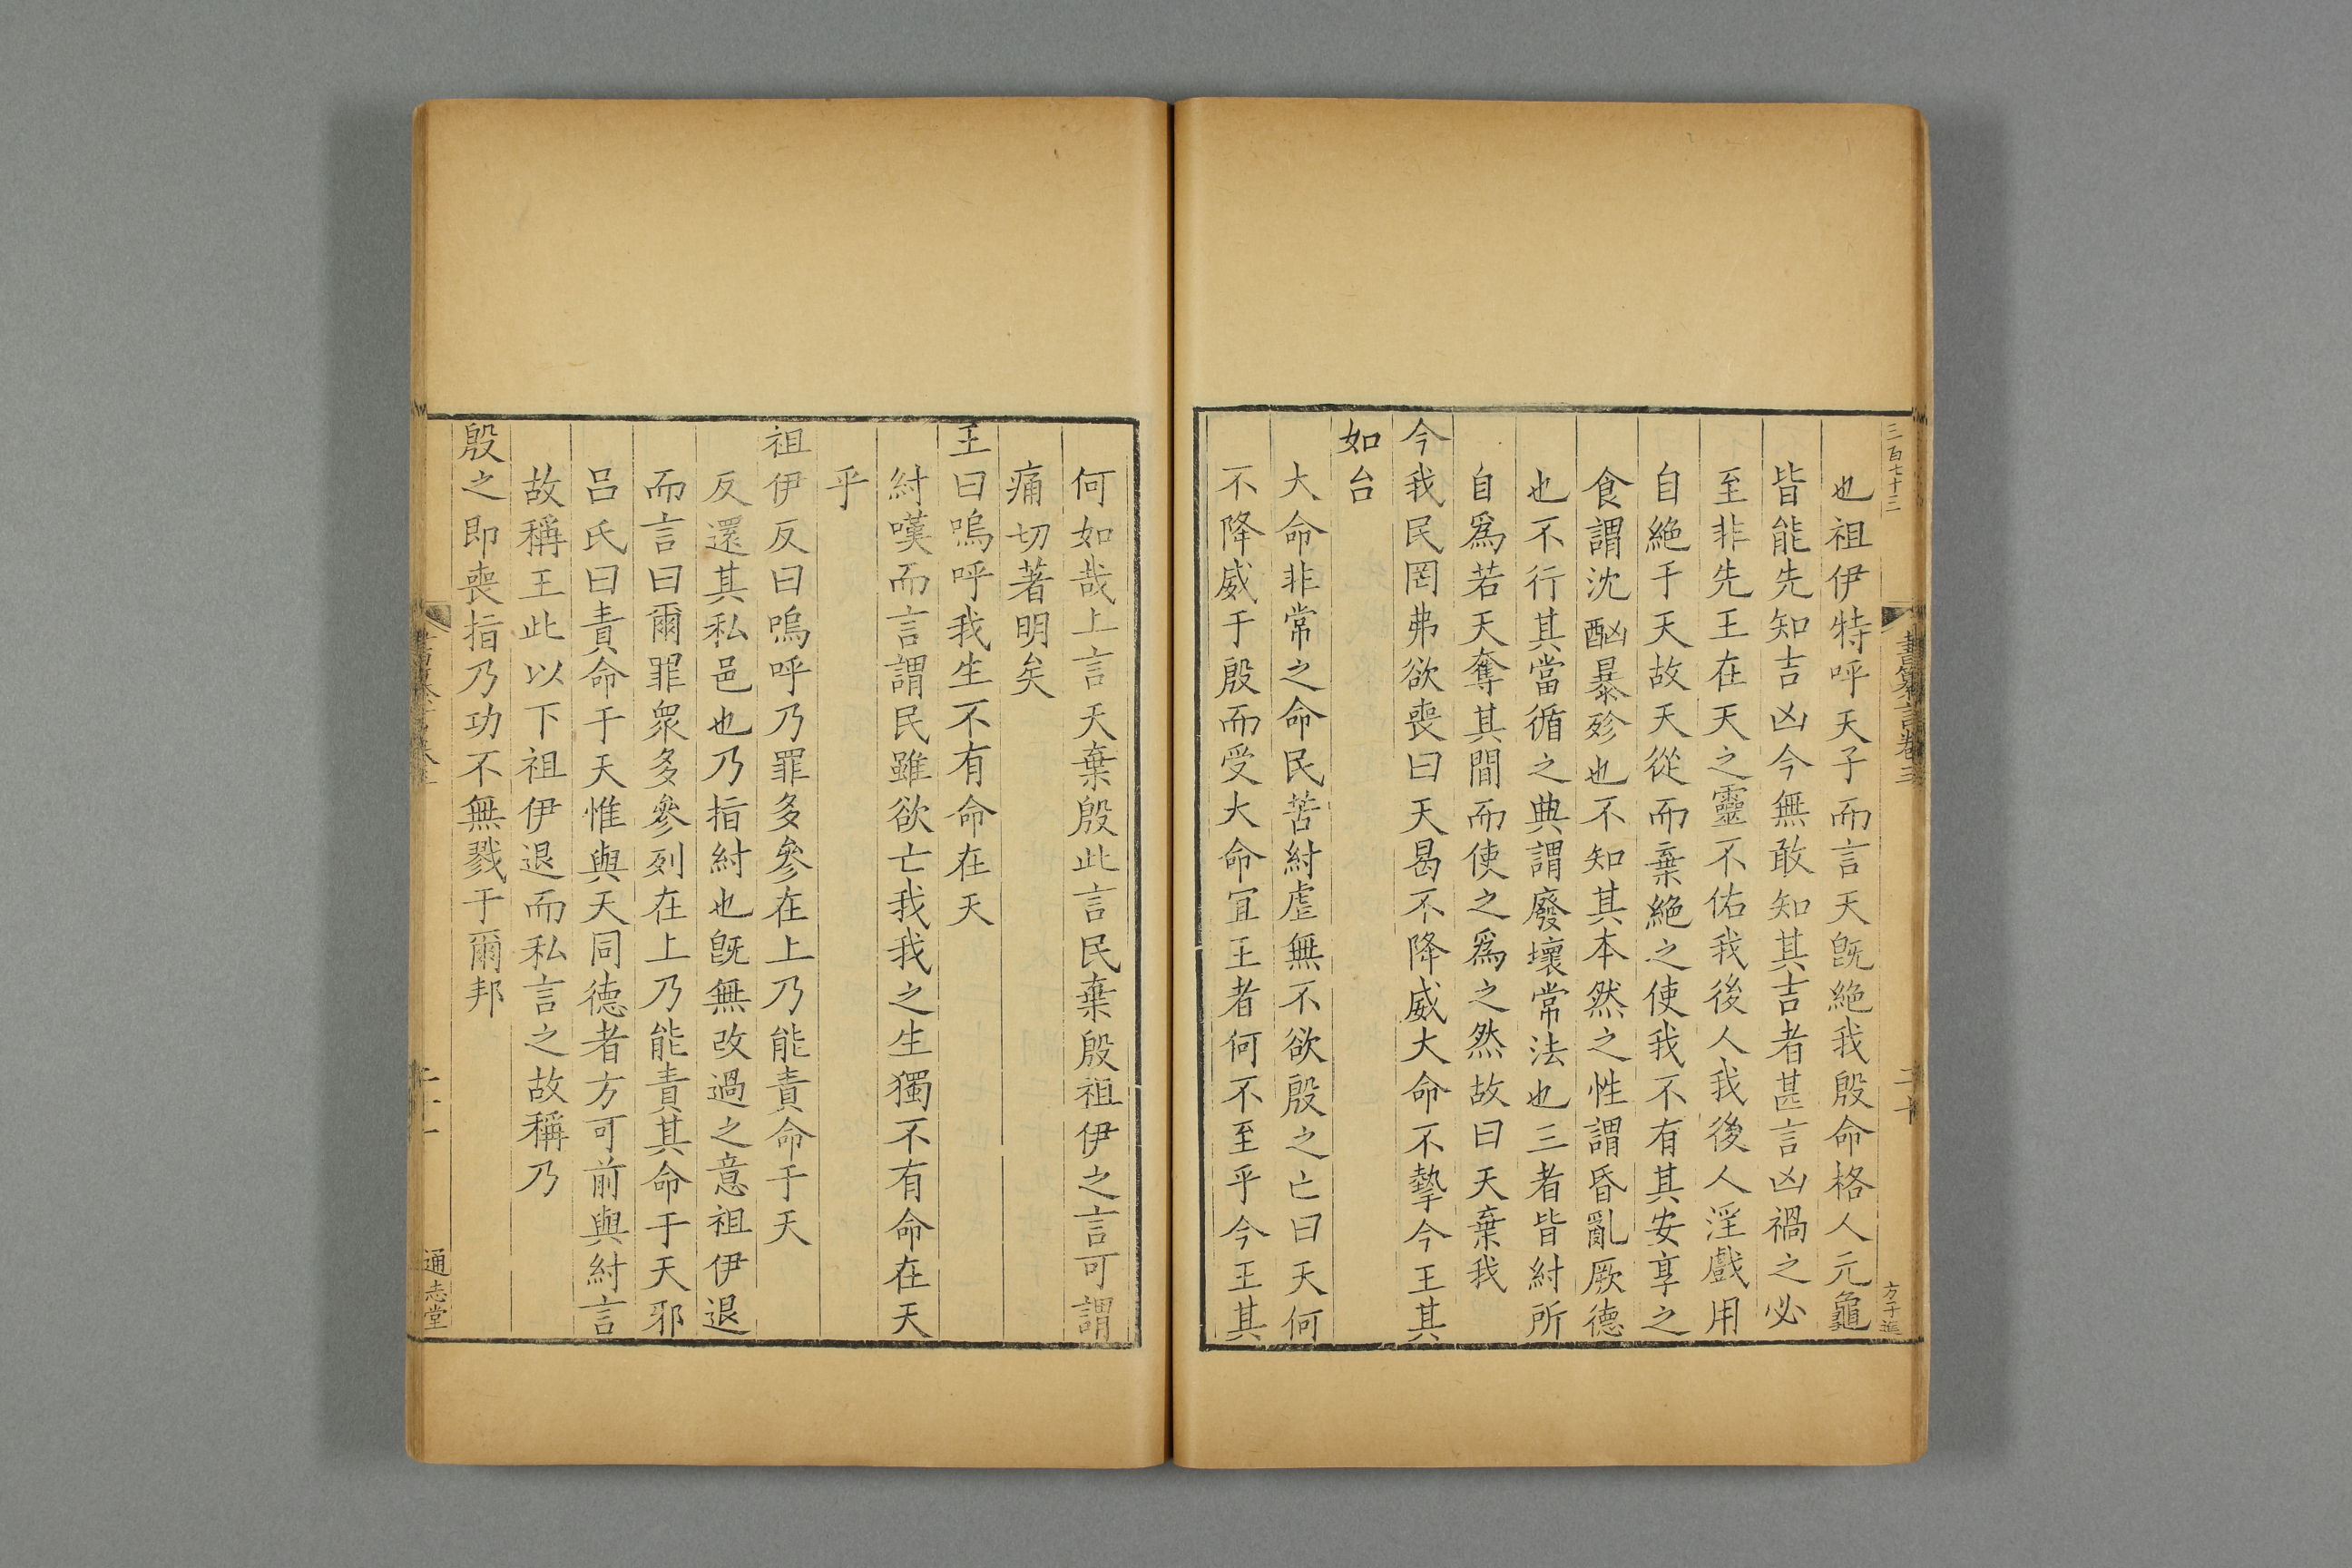 三百七十三
書纂言卷三
二十
方子進
也祖伊特呼天子而言天旣絶我殷命格人元龜
皆能先知吉凶今無敢知其吉者甚言凶禍之必
至非先王在天之靈不佑我後人我後人淫戲用
自絶于天故天從而棄絶之使我不有其安享之
食謂沈酗暴殄也不知其本然之性謂昏亂厥德
也不行其當循之典謂廢壞常法也三者皆紂所
自爲若天奪其間而使之爲之然故曰天棄我
今我民罔弗欲喪曰天曷不降威大命不摯今王其
如台
大命非常之命民苦紂虐無不欲殷之亡曰天何
不降威于殷而受大命宜王者何不至乎今王其
何如哉上言天棄殷此言民棄殷祖伊之言可謂
痛切著明矣
王曰嗚呼我生不有命在天
紂嘆而言謂民雖欲亡我我之生獨不有命在天
乎
祖伊反曰嗚呼乃罪多參在上乃能責命于天
反還其私邑也乃指紂也旣無改過之意祖伊退
而言曰爾罪衆多參列在上乃能責其命于天邪
呂氏曰責命于天惟與天同德者方可前與紂言
故稱王此以下祖伊退而私言之故稱乃
殷之即喪指乃功不無戮于爾邦
通志堂